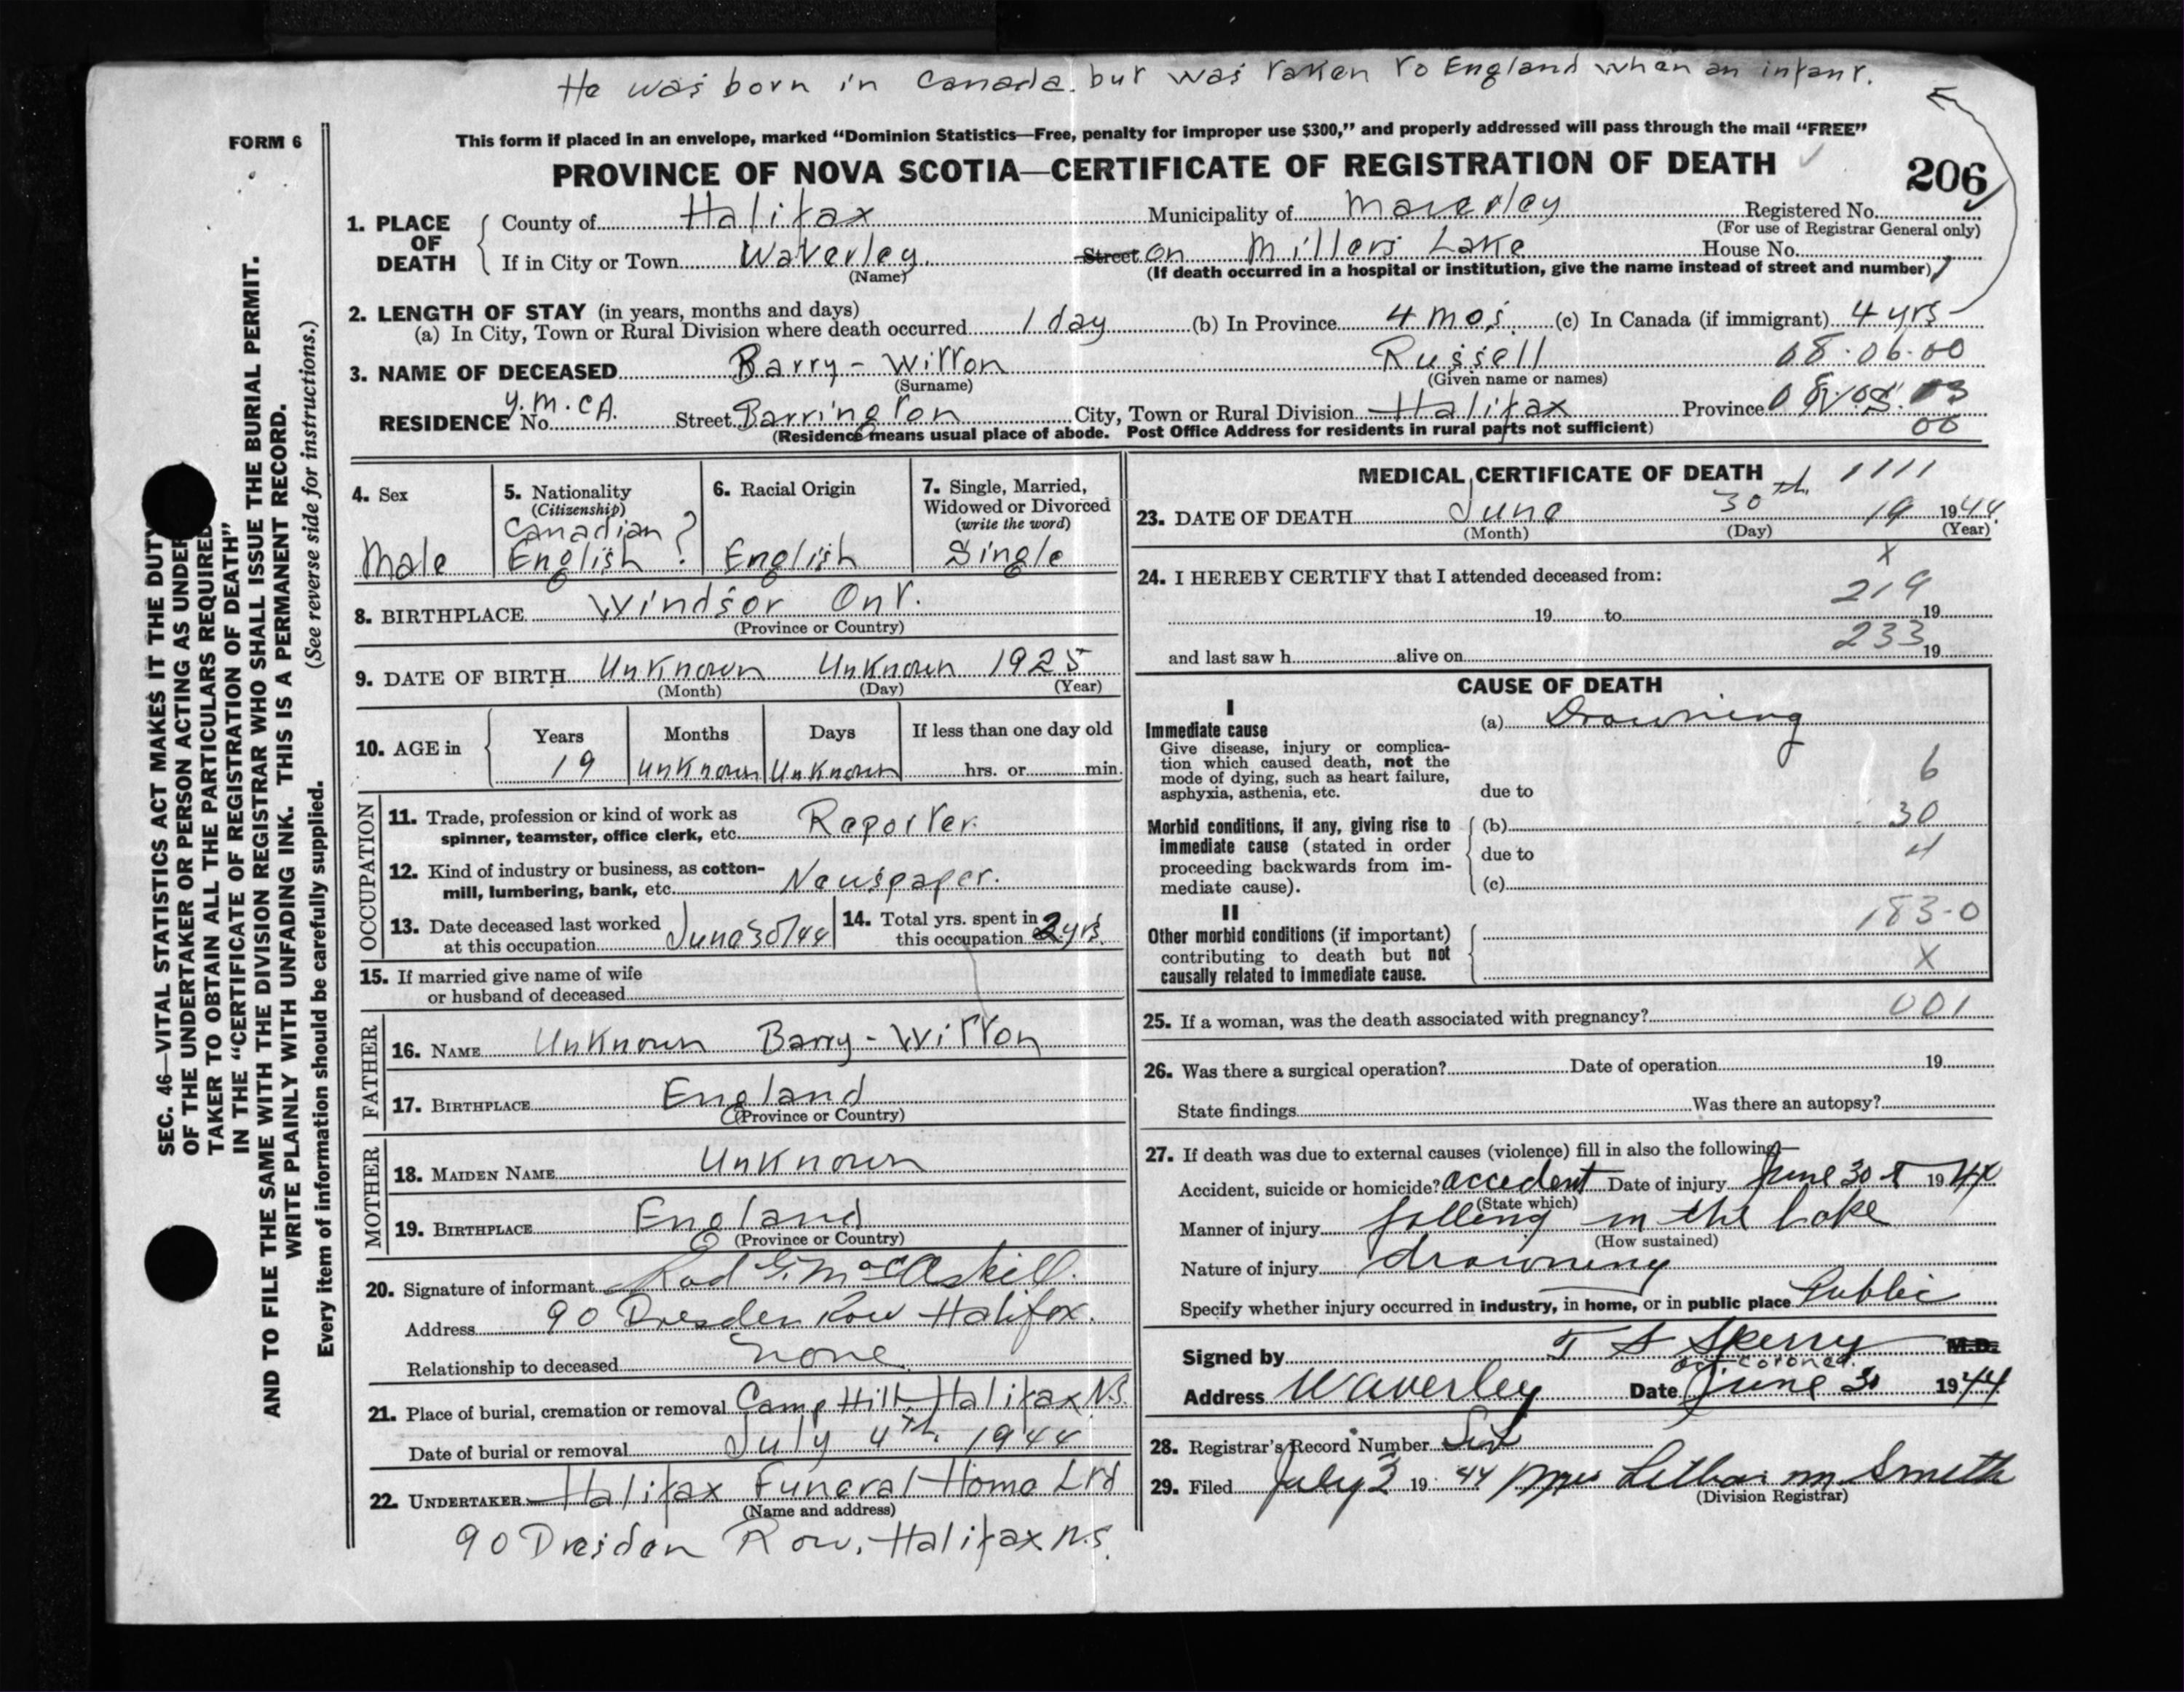 He was born in Canada. but was taken to England when an infant.
FORM 6
This form if placed in an envelope, marked “Dominion Statistics—Free, penalty for improper use $300,” and properly addressed will pass through the mail “FREE”
PROVINCE OF NOVA SCOTIA—CERTIFICATE OF REGISTRATION OF DEATH
206
1. PLACE OF DEATH
County of Halifax Municipality of Registered No.
(For use of Registrar General only)
If in City or Town Waverley. Street on Millers Lake House No.
(Name) (If death occurred in a hospital or institution, give the name instead of street and number)
2. LENGTH OF STAY (in years, months and days)
(a) In City, Town or Rural Division where death occurred 1 day (b) In Province 4 mos. (c) In Canada (if immigrant) 4 yrs
3. NAME OF DECEASED Barry-Witton Russell 08.06.00
(Surname) (Given name or names)
RESIDENCE No. Y.M.C.A. Street Barrington City, Town or Rural Division Halifax Province N.S.
(Residence means usual place of abode. Post Office Address for residents in rural parts not sufficient) 00
4. Sex Male
5. Nationality (Citizenship) Canadian English ?
6. Racial Origin English
7. Single, Married, Widowed or Divorced (write the word) Single
8. BIRTHPLACE Windsor Ont.
(Province or Country)
9. DATE OF BIRTH Unknown Unknown 1925
(Month) (Day) (Year)
10. AGE in Years Months Days If less than one day old
19 unknown Unknown hrs. or min.
OCCUPATION
11. Trade, profession or kind of work as
spinner, teamster, office clerk, etc. Reporter.
12. Kind of industry or business, as cotton-
mill, lumbering, bank, etc. Newspaper.
13. Date deceased last worked
at this occupation June 30/44
14. Total yrs. spent in
this occupation 2 yrs.
15. If married give name of wife
or husband of deceased
FATHER
16. NAME Unknown Barry-Witton
17. BIRTHPLACE England
(Province or Country)
MOTHER
18. MAIDEN NAME Unknown
19. BIRTHPLACE England
(Province or Country)
20. Signature of informant Rod G. MacAskill.
Address 90 Dresden Row Halifax.
Relationship to deceased none
21. Place of burial, cremation or removal Camp Hill, Halifax N.S.
Date of burial or removal July 4th. 1944
22. UNDERTAKER Halifax Funeral Home Ltd
(Name and address)
90 Dresden Row, Halifax N.S.
MEDICAL CERTIFICATE OF DEATH 1111
23. DATE OF DEATH June 30th. 19 1944
(Month) (Day) (Year)
X
24. I HEREBY CERTIFY that I attended deceased from:
219
19 to 19
233
and last saw h alive on 19
CAUSE OF DEATH
I
Immediate cause (a) Drowning
Give disease, injury or complica-
tion which caused death, not the
mode of dying, such as heart failure,
asphyxia, asthenia, etc. due to 6
Morbid conditions, if any, giving rise to (b) 30
immediate cause (stated in order due to
proceeding backwards from im-
mediate cause). (c)
II 183-0
Other morbid conditions (if important)
contributing to death but not X
causally related to immediate cause.
25. If a woman, was the death associated with pregnancy? 001
26. Was there a surgical operation? Date of operation 19
State findings Was there an autopsy?
27. If death was due to external causes (violence) fill in also the following:—
Accident, suicide or homicide? accedent Date of injury June 30 1944
(State which)
Manner of injury falling in the lake
(How sustained)
Nature of injury drowning
Specify whether injury occurred in industry, in home, or in public place Public
Signed by T S Sperry M.D.
coroner.
Address Waverley Date June 30 1944
28. Registrar's Record Number Six
29. Filed July 3 19 44 Mrs M Smith
(Division Registrar)
SEC. 46—VITAL STATISTICS ACT MAKES IT THE DUTY
OF THE UNDERTAKER OR PERSON ACTING AS UNDER
TAKER TO OBTAIN ALL THE PARTICULARS REQUIRED
IN THE “CERTIFICATE OF REGISTRATION OF DEATH”
AND TO FILE THE SAME WITH THE DIVISION REGISTRAR WHO SHALL ISSUE THE BURIAL PERMIT.
WRITE PLAINLY WITH UNFADING INK. THIS IS A PERMANENT RECORD.
Every item of information should be carefully supplied. (See reverse side for instructions.)